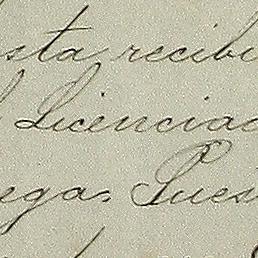 sta recibi
l Licenciad
egas Pues